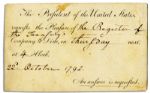 The President of the United States
requests the Pleasure of the Register of
the Treasury's
Company to Dine, on Thursday next
at 4 o'Clock.
22d October 1792.
An answer is requested.